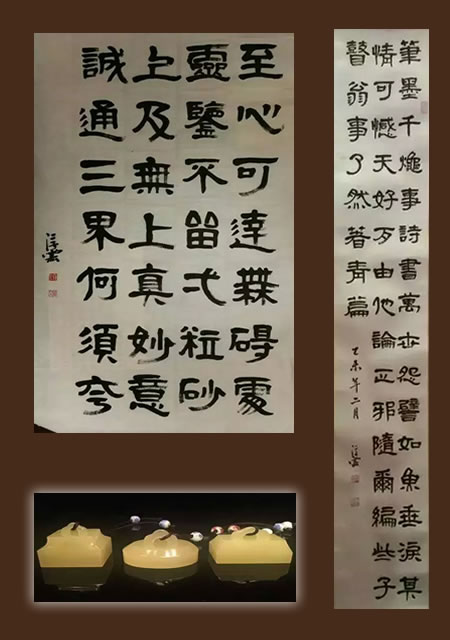 至心可達無碍處
靈鑒不留弌粒砂
上及無上真妙意
誠通三界何須夸
筆墨千事詩書萬世怨譬如魚垂淚其
情可憾天好歹由他論正邪隨爾編些子
瞽翁事了然著青篇
乙未年二月